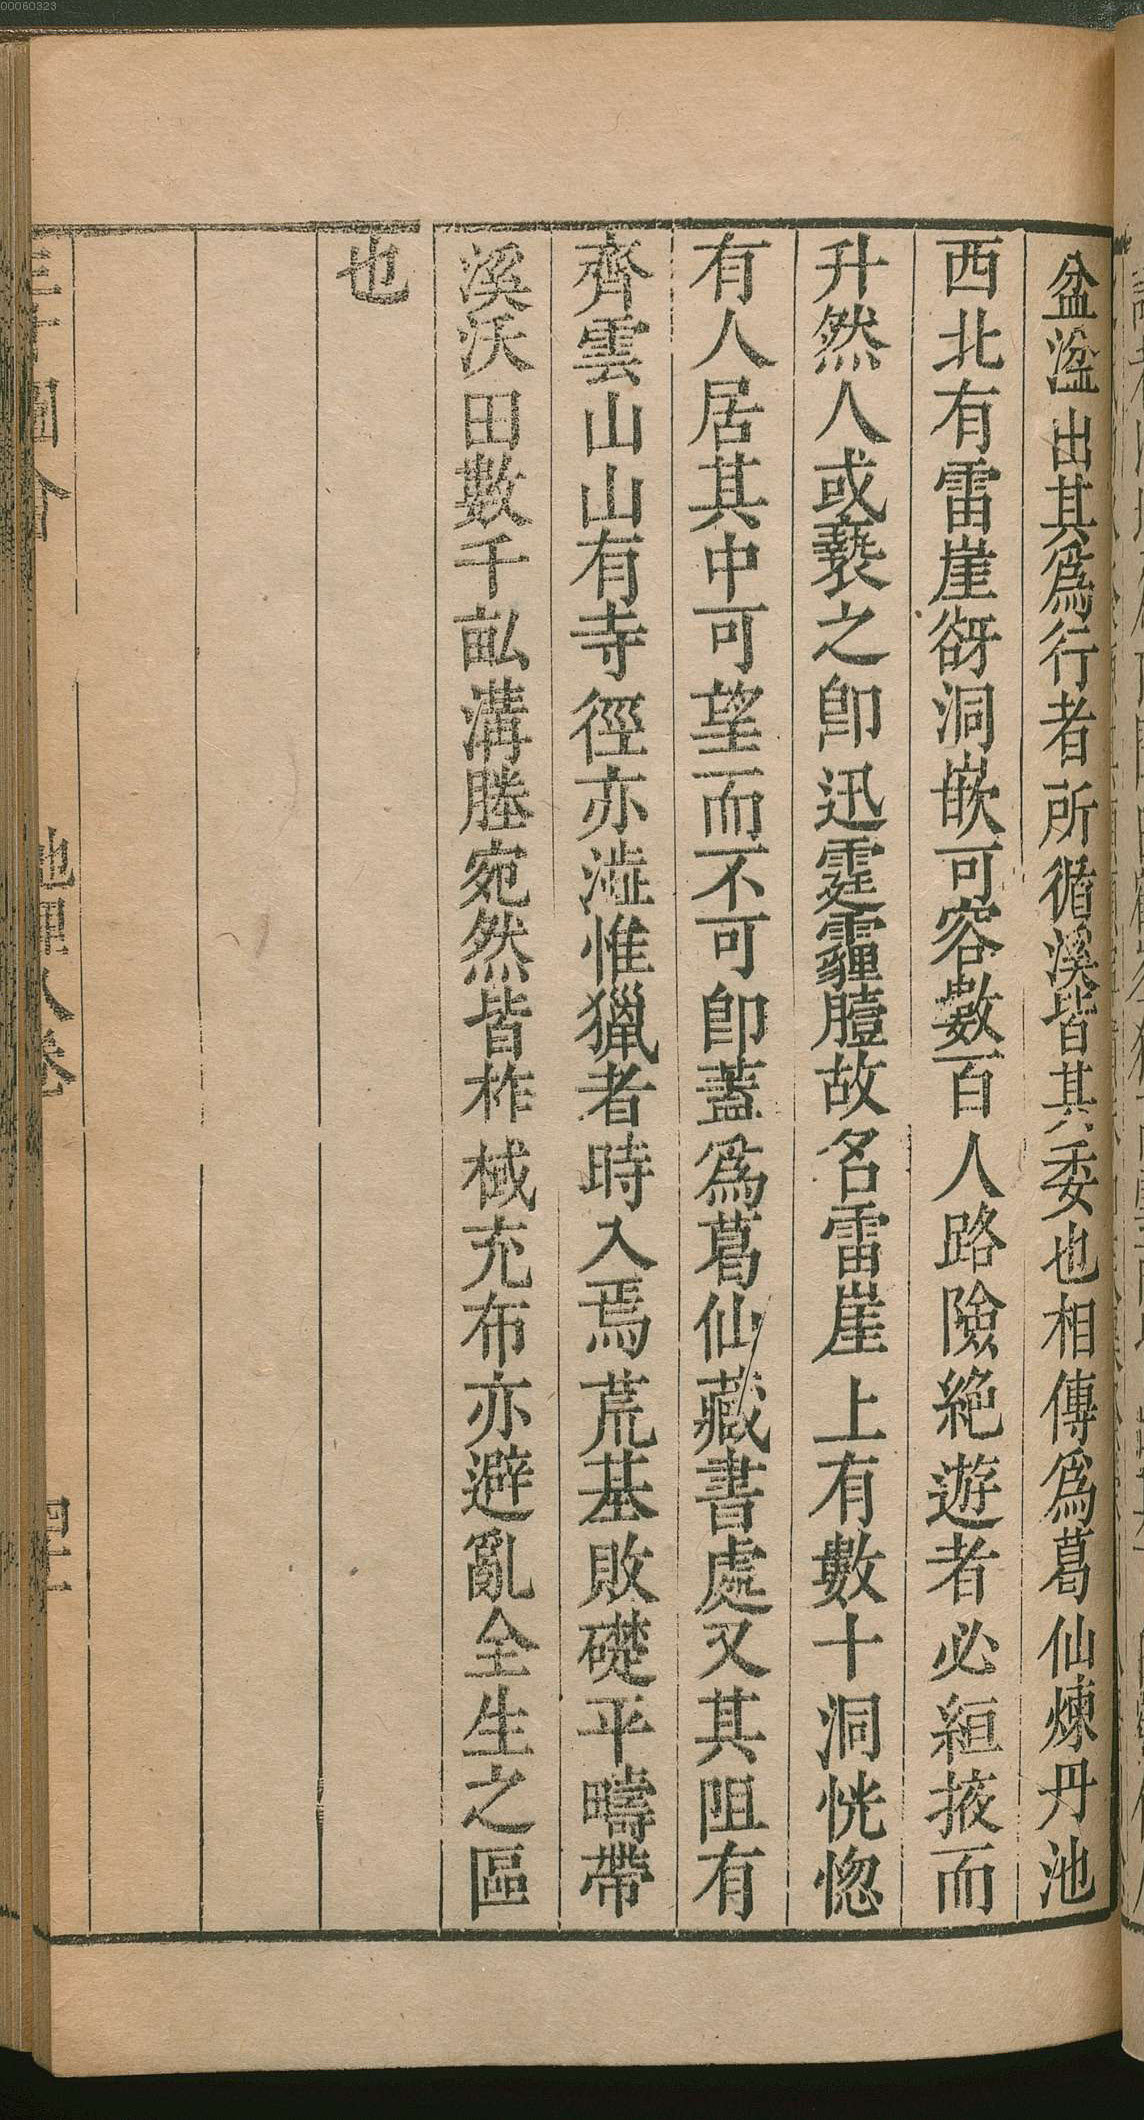 00060323
盆溢出其爲行者所循溪皆其委也相傳爲葛仙煉丹池
西北有雷崖谺洞嵌可容數百人路險絶遊者必絙掖而
升然人或褻之卽迅霆霾曀故名雷崖上有數十洞恍惚
有人居其中可望而不可卽蓋爲葛仙藏書處又其阻有
齊雲山山有寺徑亦澁惟獵者時入焉荒基敗礎平疇帶
溪沃田數千畝溝塍宛然皆柞棫充布亦避亂全生之區
也
三才圖會
地理八卷